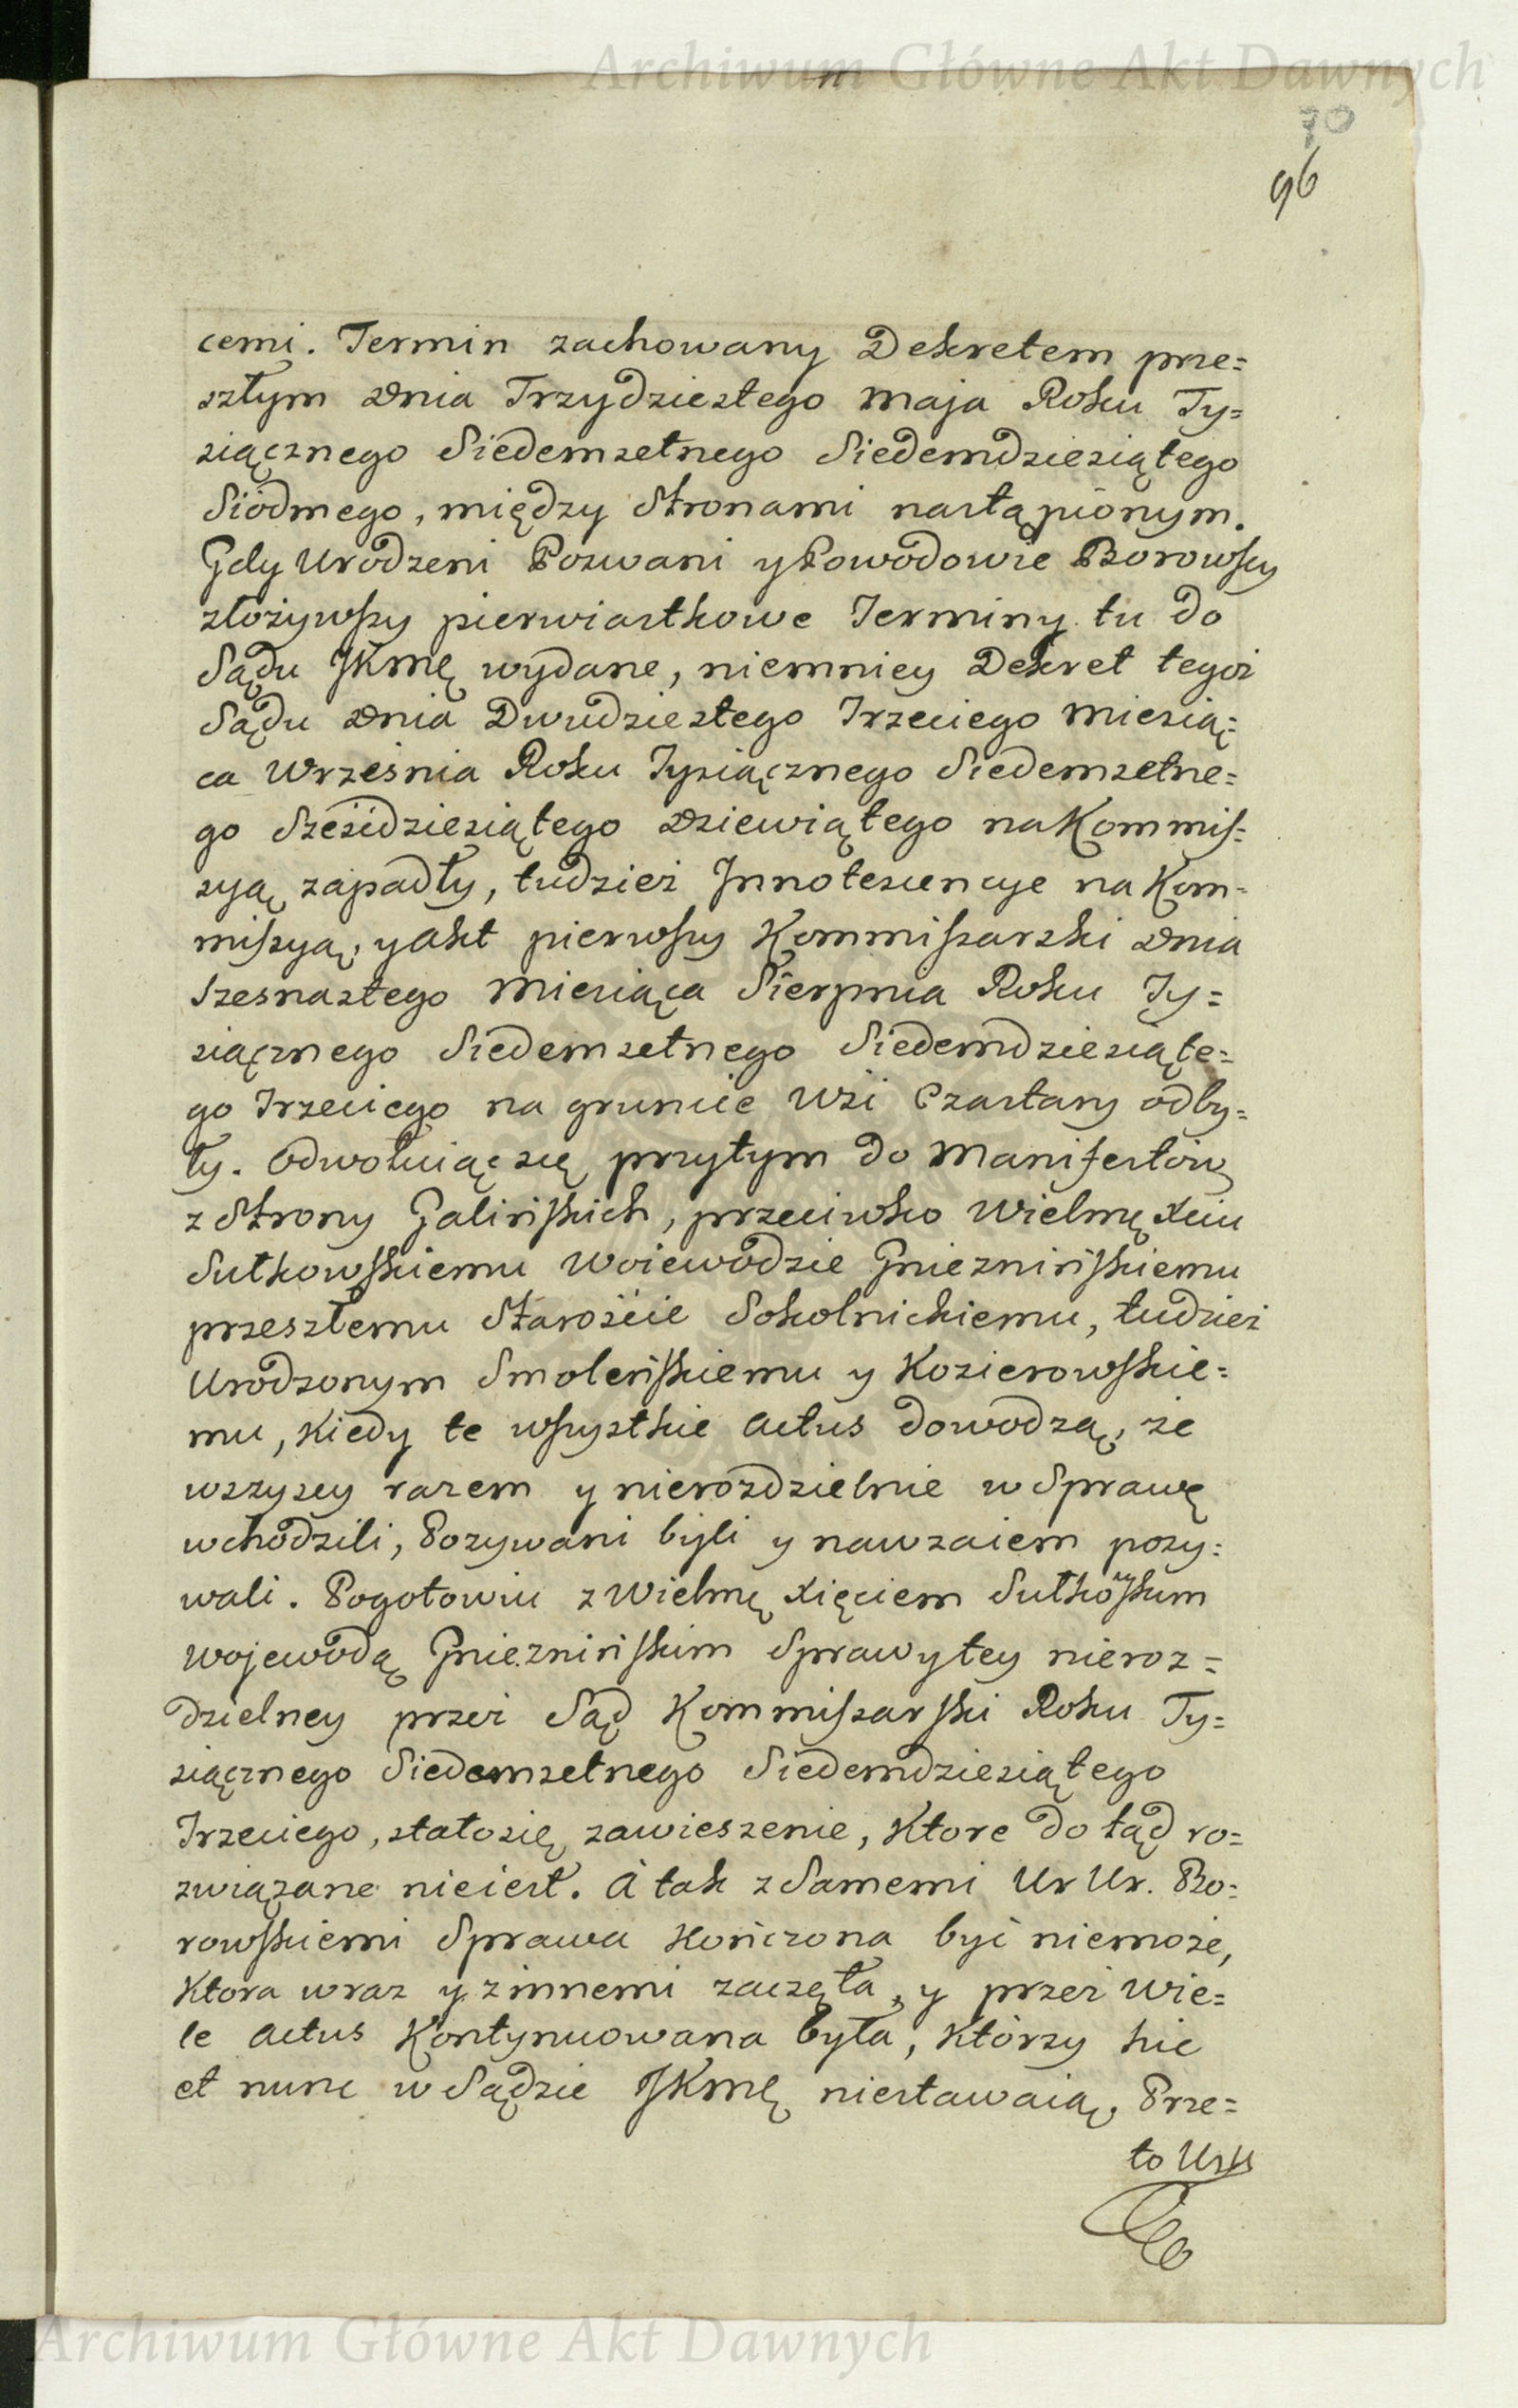 Archiwum Główne Akt Dawnych
70
96
cemi. Termin zachowany Dekretem prze=
szłym Dnia Trzydziestego Maja Roku Ty=
siącznego Siedemsetnego Siedemdziesiątego
Siódmego, między Stronami nastąpionym.
Gdy Urodzeni Pozwani y Powodowie Borowscy
złożywszy pierwiastkowe Terminy tu do
Sądu JKMę wydane, niemniey Dekret tegoż
Sądu Dnia Dwudziestego Trzeciego Miesią=
ca Września Roku Tysiącznego Siedemsetne=
go Sześćdziesiątego Dziewiątego na Kommis=
syą zapadły, tudzież Innotescencye na Kom=
missyą, y Akt pierwszy Kommissarski Dnia
Szesnastego Miesiąca Sierpnia Roku Ty=
siącznego Siedemsetnego Siedemdziesiąte=
go Trzeciego na gruncie Wsi Czartary odby=
ty. Odwołuiąc się przytym do Manifestów
z Strony Galińskich, przeciwko Wielmę Xciu
Sułkowskiemu Woiewodzie Gnieznińskiemu
przeszłemu Staroście Sokolnickiemu, tudzież
Urodzonym Smoleńskiemu y Kozierowskie=
mu, Kiedy te wszystkie Actus dowodzą, że
wszyscy razem y nierozdzielnie w Sprawę
wchodzili, Pozywani byli y nawzaiem pozy=
wali. Pogotowiu z Wielmę Xięciem Sułkowskim
Wojewodą Gnieznińskim Sprawy tey nieroz=
dzielney przez Sąd Kommissarski Roku Ty=
siącznego Siedemsetnego Siedemdziesiątego
Trzeciego, stało się zawieszenie, Ktore do tąd ro=
związane nieiest. A tak z Samemi Ur Ur. Bo=
rowskiemi Sprawa Kończona być niemoże,
Ktora wraz y z innemi zaczęta, y przez Wie=
le Actus Kontynuowana była, Którzy hic
et nunc w Sądzie JKMę niestawaią, Prze=
to UrU
Archiwum Główne Akt Dawnych